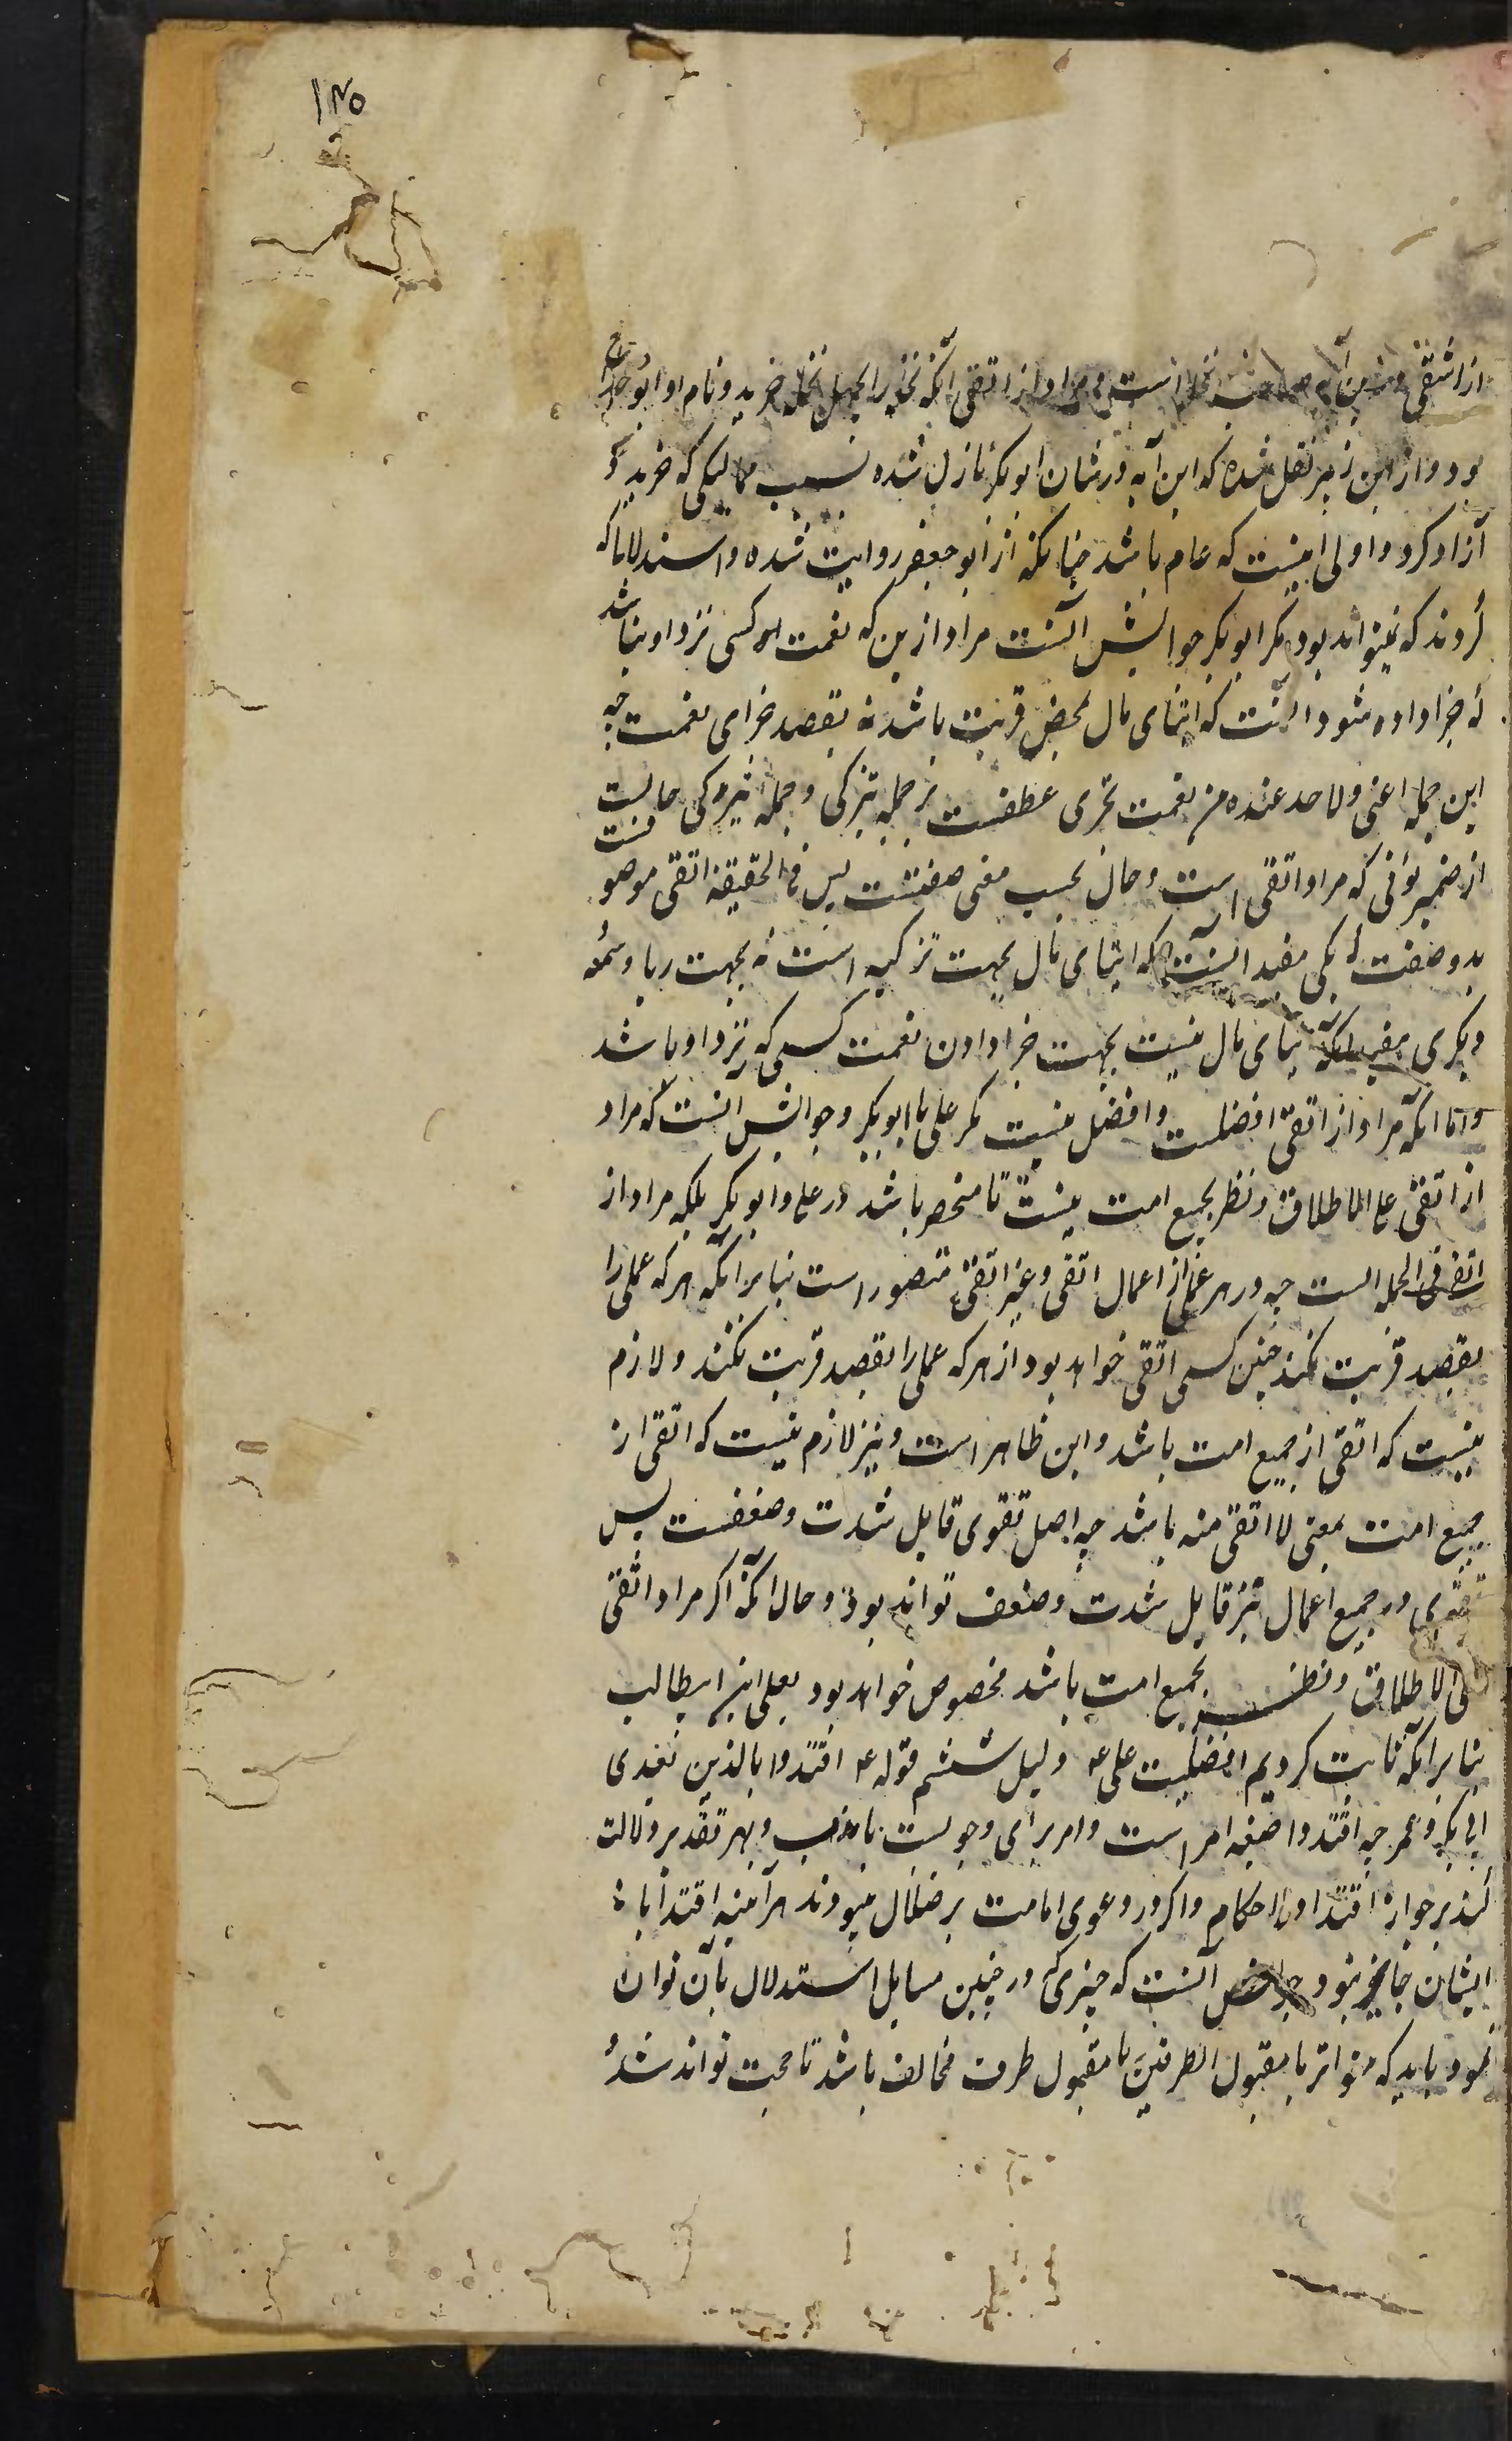 ۱۲۵
از اشقی درین آیه صاحب نخله است و مراد از اتقی آنکه نخله را بچهل نخله خرید و نام او ابو دحداح
بود و از ابن زبیر نقل شده که این آیه در شان ابو بکر نازل شده بسبب ممالیکی که خرید و
آزاد کرد و اولی اینست که عام باشد چنانکه از ابو جعفر روایت شده و استدلالها که
کردند که نمیتواند بود مگر ابو بکر جوابش آنست مراد ازین که نعمت کسی نزد او نباشد
که جزا داده شود آنست که ایتای مال بمحض قربت باشد نه بقصد جزای نعمت چه
این جمله اعنی و لاحد عنده من نعمت تجزی عطفست بر جمله یتزکی و جمله یتزکی حالست
از ضمیر یؤتی که مراد اتقی است و حال بحسب معنی صفتست پس فی الحقیقة اتقی موصوفست
بدو صفت یکی مفید آنست که ایتای مال بجهت تزکیه است نه بجهت ریا و سمعه
دیگری مفید آنکه ایتای مال نیست بجهت جزا دادن نعمت کسی که نزد او باشد
و اما آنکه مراد از اتقی افضلست و افضل نیست مگر علی یا ابو بکر و جوابش آنست که مراد
از اتقی علی الاطلاق و نظر بجمیع امت نیست تا منحصر باشد در علی و ابو بکر بلکه مراد از
اتقی فی الجمله است چه در هر عملی از اعمال اتقی و غیر اتقی متصور است بنابر آنکه هر که عملی را
بقصد قربت بکند چنین کسی اتقی خواهد بود از هر که عملی را بقصد قربت نکند و لازم
نیست که اتقی از جمیع امت باشد و این ظاهر است و نیز لازم نیست که اتقی از
جمیع امت بمعنی لا اتقی منه باشد چه اصل تقوی قابل شدت و ضعفست پس
تقوی در جمیع اعمال نیز قابل شدت و ضعف تواند بود و حال آنکه اگر مراد اتقی
علی الاطلاق و نظر بجمیع امت باشد مخصوص خواهد بود بعلی ابن ابیطالب
بنابر آنکه ثابت کردیم افضلیت علی ع دلیل ششم قوله ع اقتدوا بالذین بعدی
ابی بکر و عمر چه اقتدوا صیغه امر است و امر برای وجوبست یا ندب و بهر تقدیر دلالت
کند بر جواز اقتدا در احکام و اگر در دعوی امامت بر ضلال میبودند هرآینه اقتدا به
ایشان جایز نبود جوابش آنست که چیزی که در چنین مسایل استدلال بآن توان
نمود باید که متواتر یا مقبول الطرفین یا مقبول طرف مخالف باشد تا حجت تواند شد و